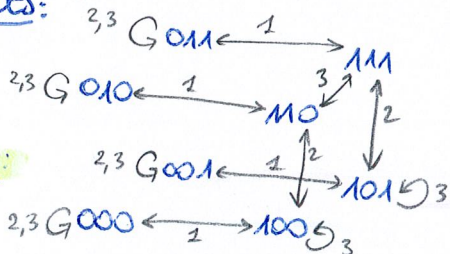 2,3 011 1 111
2,3 010 1 110 3 2
2,3 001 1 2 101 3
2,3 000 1 100 3